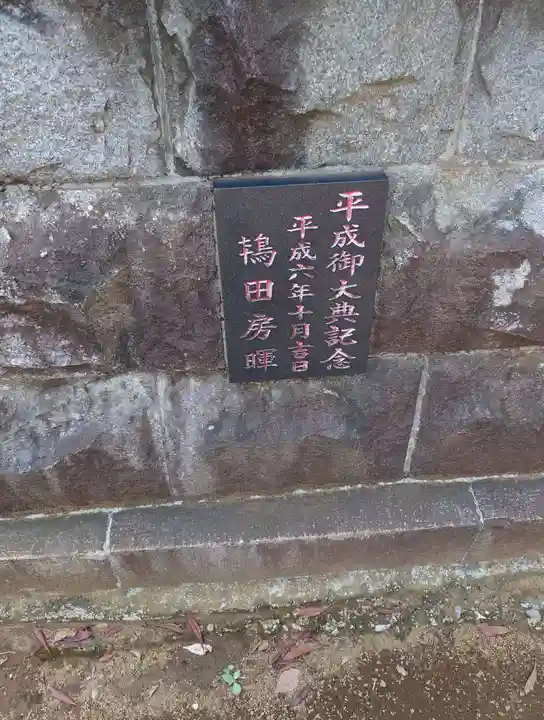 平成御大典記念
平成六年十月吉日
鴇田房暉